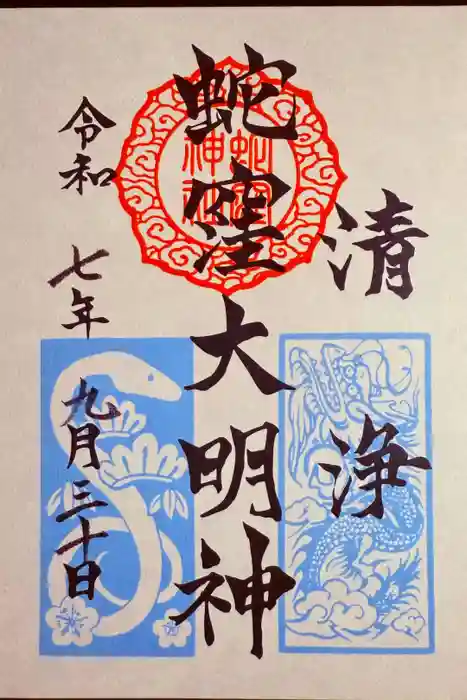 清浄
蛇窪大明神
蛇窪神社
令和七年九月三十日